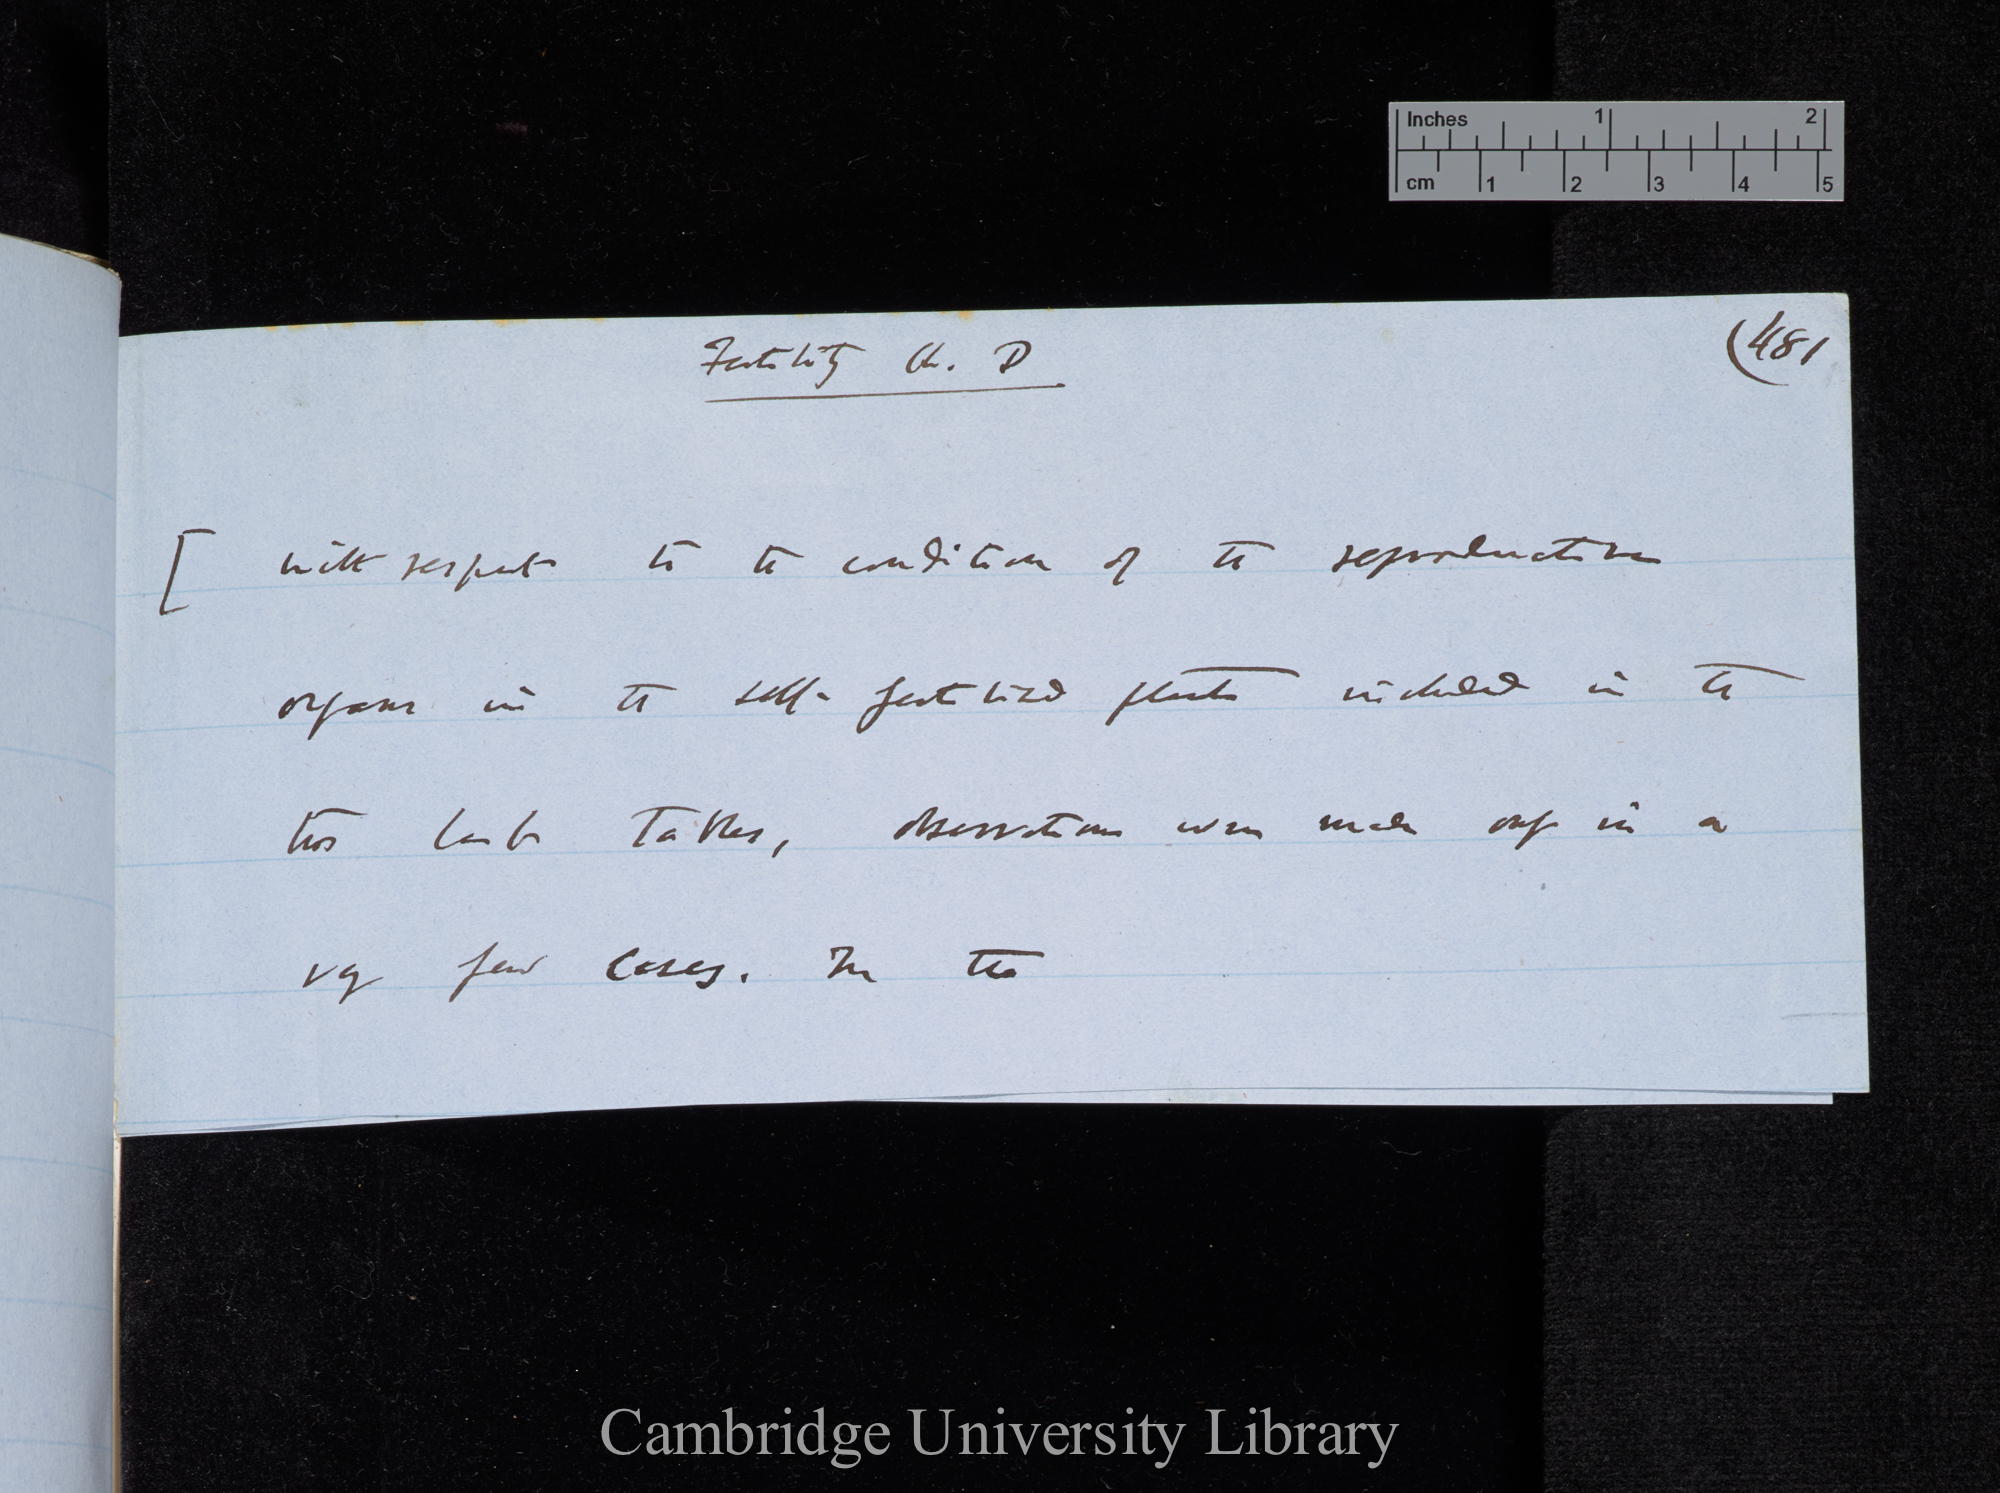 Inches 1 2
cm 1 2 3 4 5
Fertility Ch. D
(481
[ with respect to the condition of the reproductive
organs in the self-fertilised plants included in the
two last Tables, observations were made only in a
very few cases. In the
Cambridge University Library